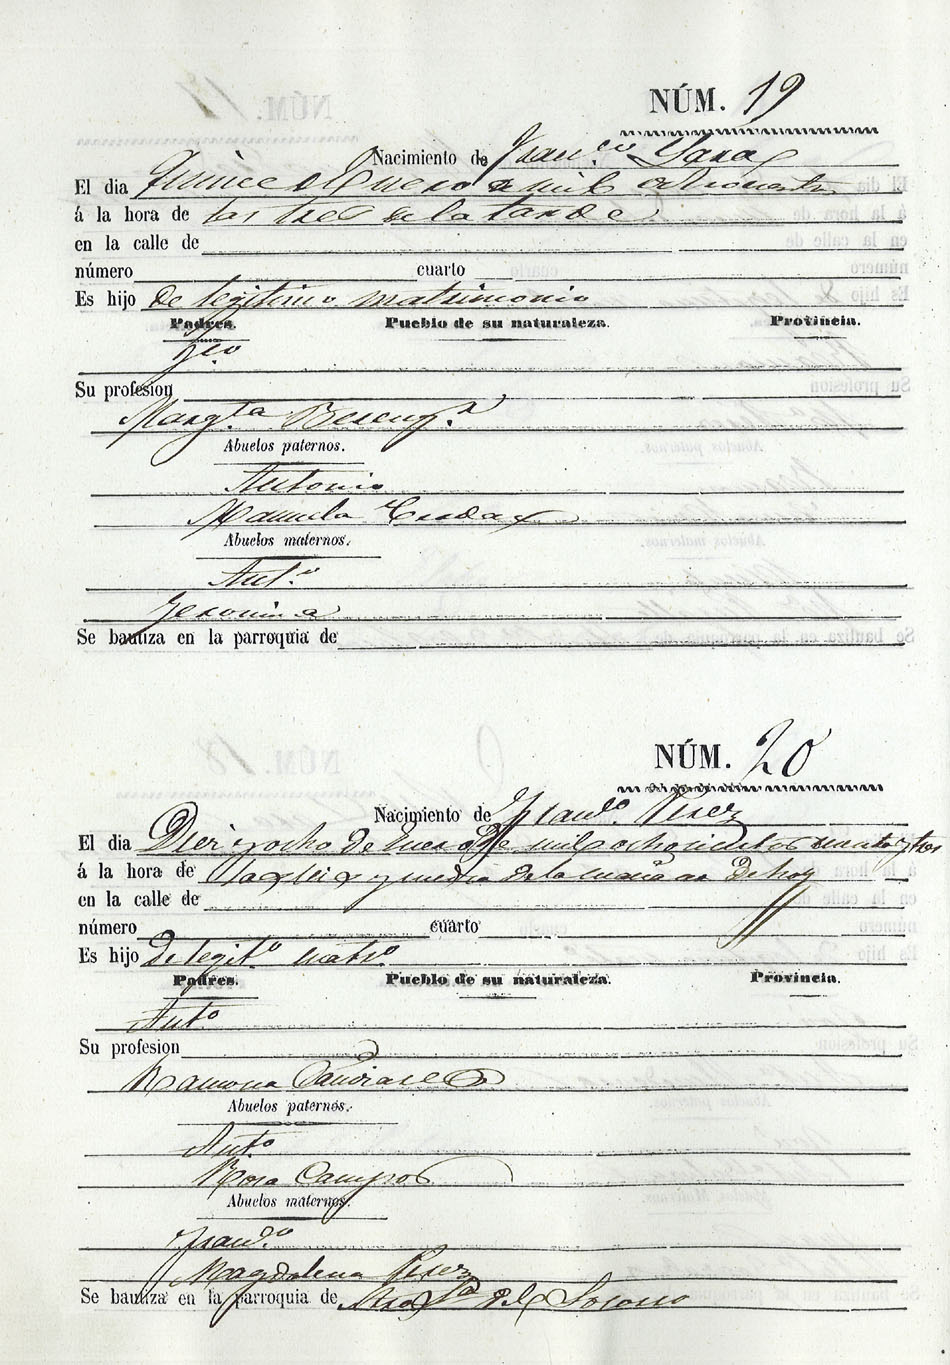 NÚM. 19
Nacimiento de Fran.co Lara
El dia Quince de Enero de mil
á la hora de las tres de la tarde
en la calle de
número cuarto
Es hijo de legitimo matrimonio
Padres. Pueblo de su naturaleza. Provincia.
Fco
Su profesion
Marg.ta
Abuelos paternos.
Antonio
Manuela Cerdá
Abuelos maternos.
Ant.o
Jeronima
Se bautiza en la parroquia de
NÚM. 20
Nacimiento de Fran.co Perez
El dia Diez y ocho de Enero de mil ochocientos y tres
á la hora de las seis y media de la mañana de hoy
en la calle de
número cuarto
Es hijo de legit.o matr.o
Padres. Pueblo de su naturaleza. Provincia.
Ant.o
Su profesion
Ramona
Abuelos paternos.
Ant.o
Rosa Campos
Abuelos maternos.
Fran.co
Magdalena Perez
Se bautiza en la parroquia de Ntra Sra del Socorro